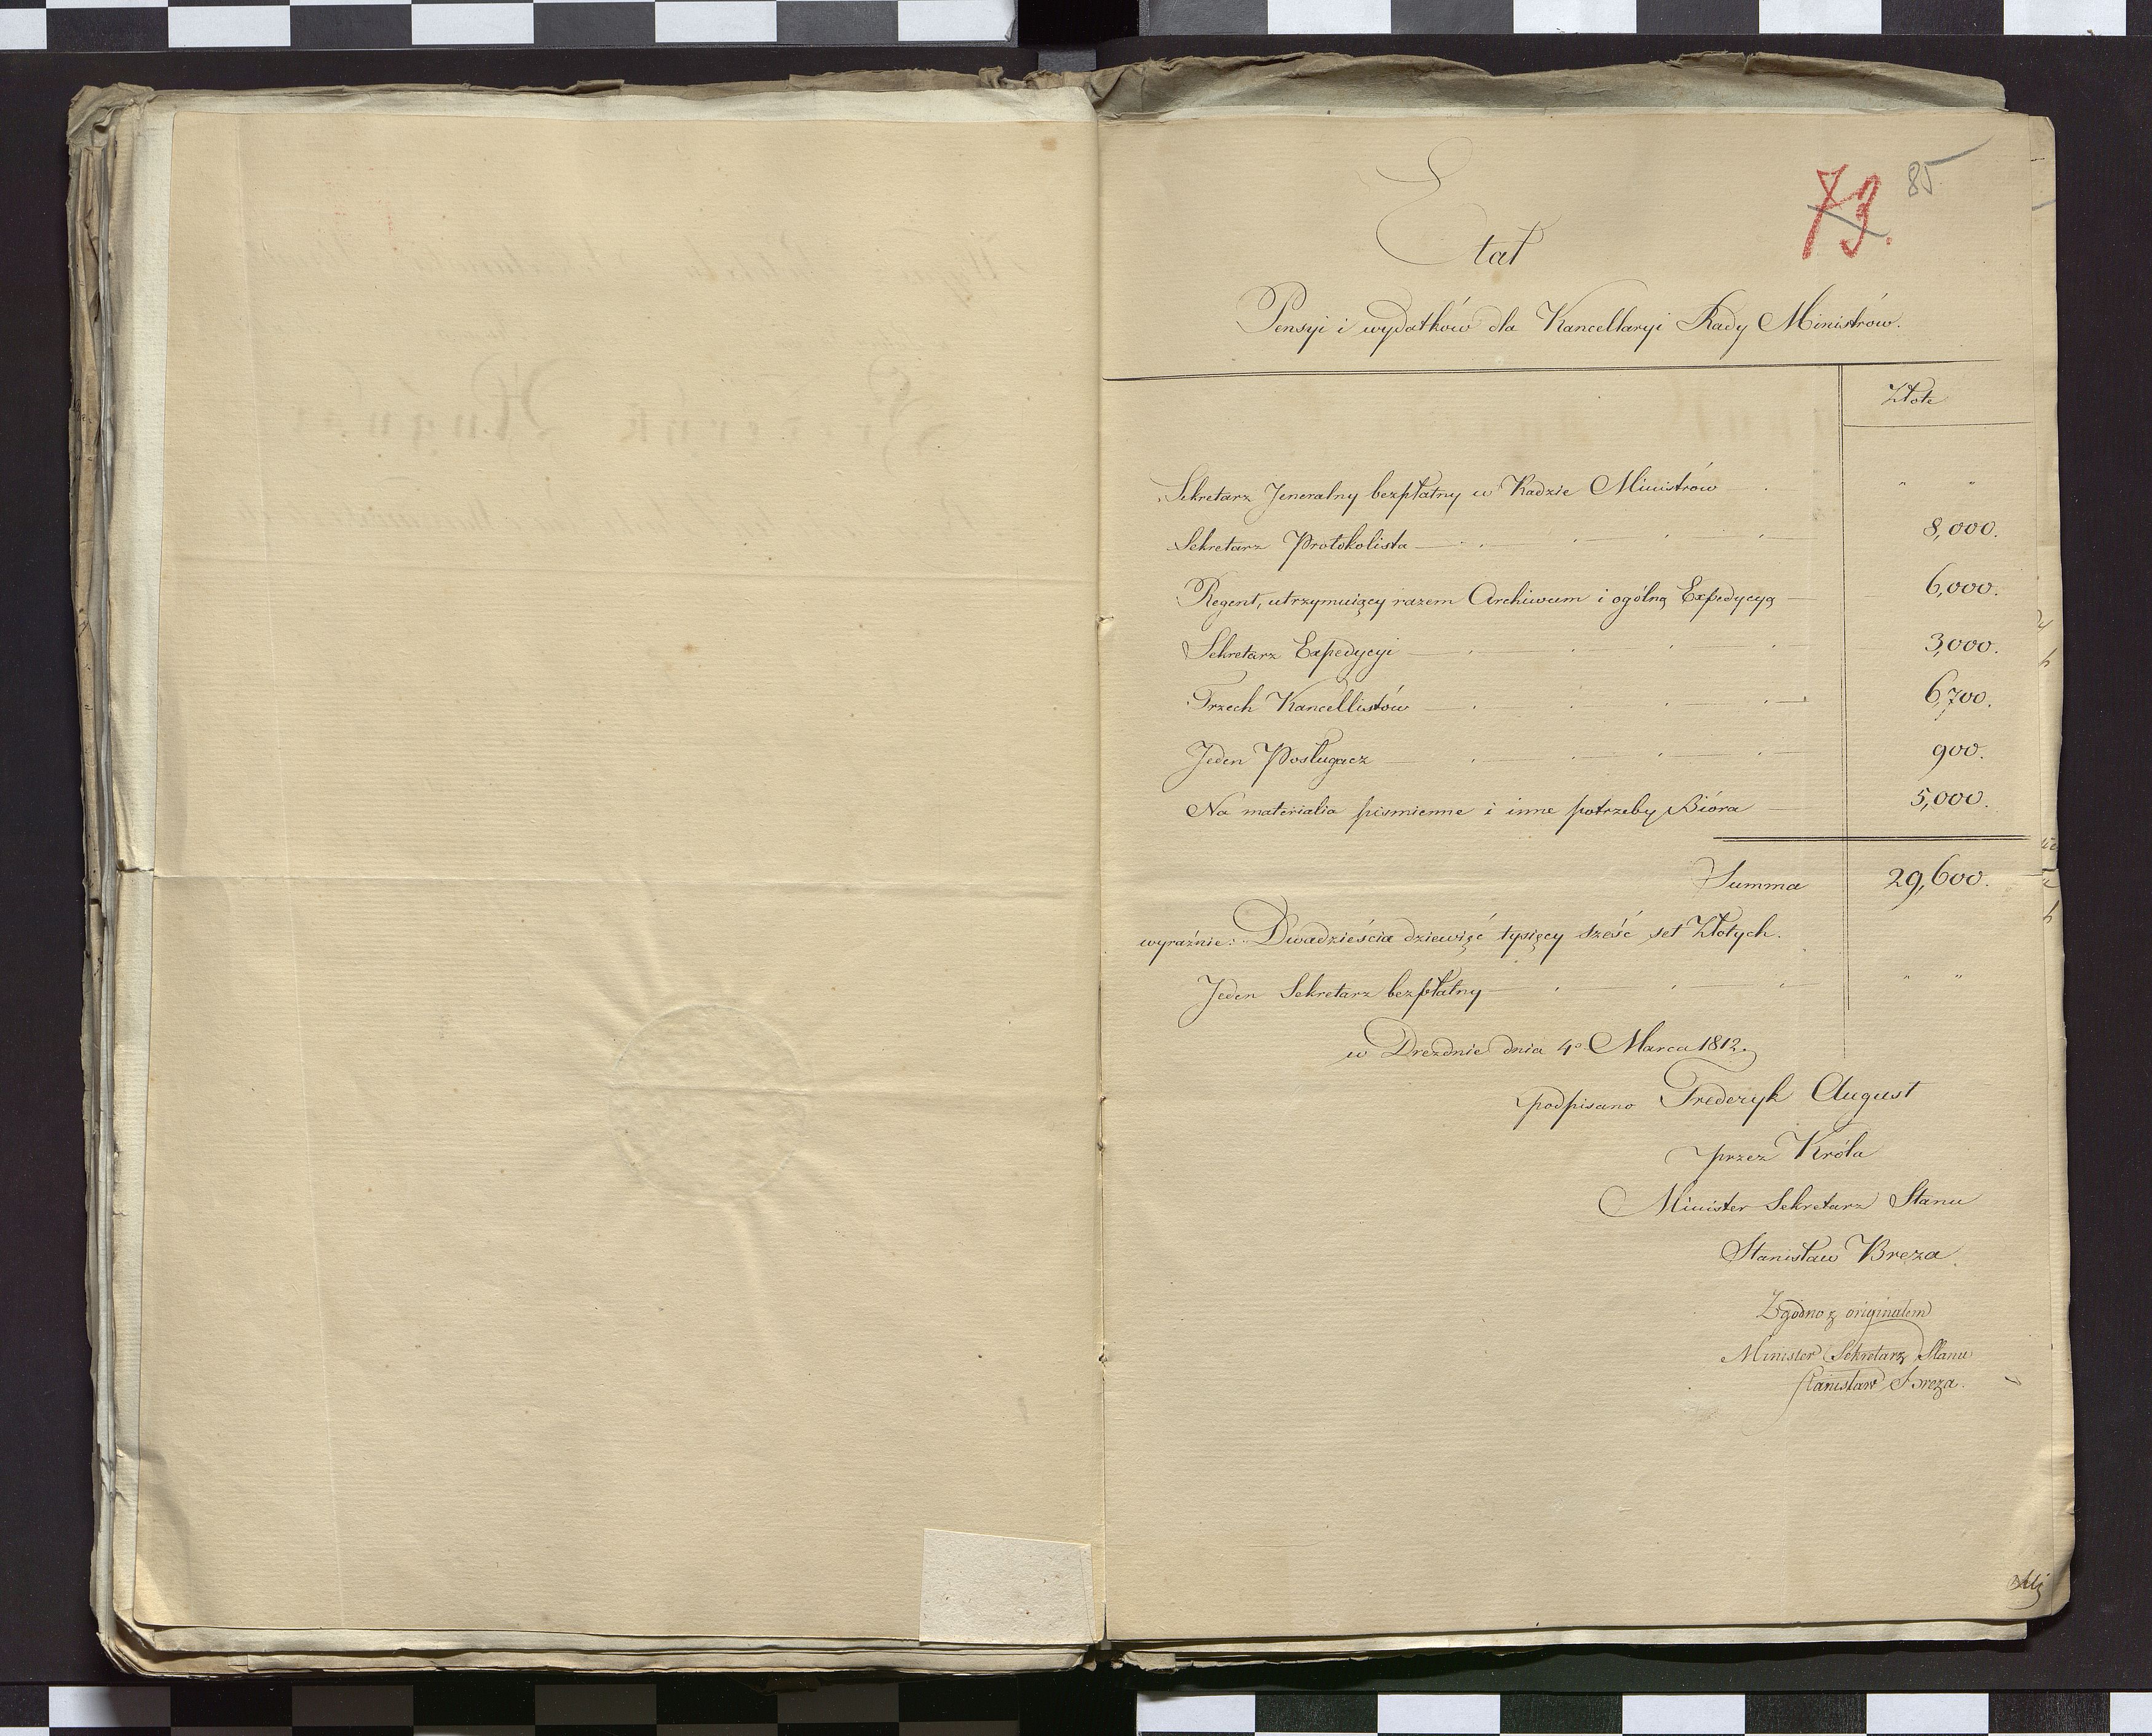 73. 85
Etat
Pensyi i wydatków dla Kancellaryi Rady Ministrów.
Złote
Sekretarz Jeneralny bezpłatny w Radzie Ministrów — . " "
Sekretarz Protokolista — 8,000.
Regent, utrzymuiący razem Archiwum i ogólną Expedycyą — 6,000.
Sekretarz Expedycyi — 3,000.
Trzech Kancellistów — 6,700.
Jeden Posługacz — 900.
Na materialia piśmienne i inne potrzeby Bióra — 5,000.
Summa 29,600.
wyraźnie: Dwadzieścia dziewięć tysięcy sześć set Złotych.
Jeden Sekretarz bezpłatny — " "
w Dreznie dnia 4o Marca 1812.
podpisano Frederyk August
przez Króla
Minister Sekretarz Stanu
Stanisław Breza.
Zgodno z originałem
Minister Sekretarz Stanu
Stanisław Breza.